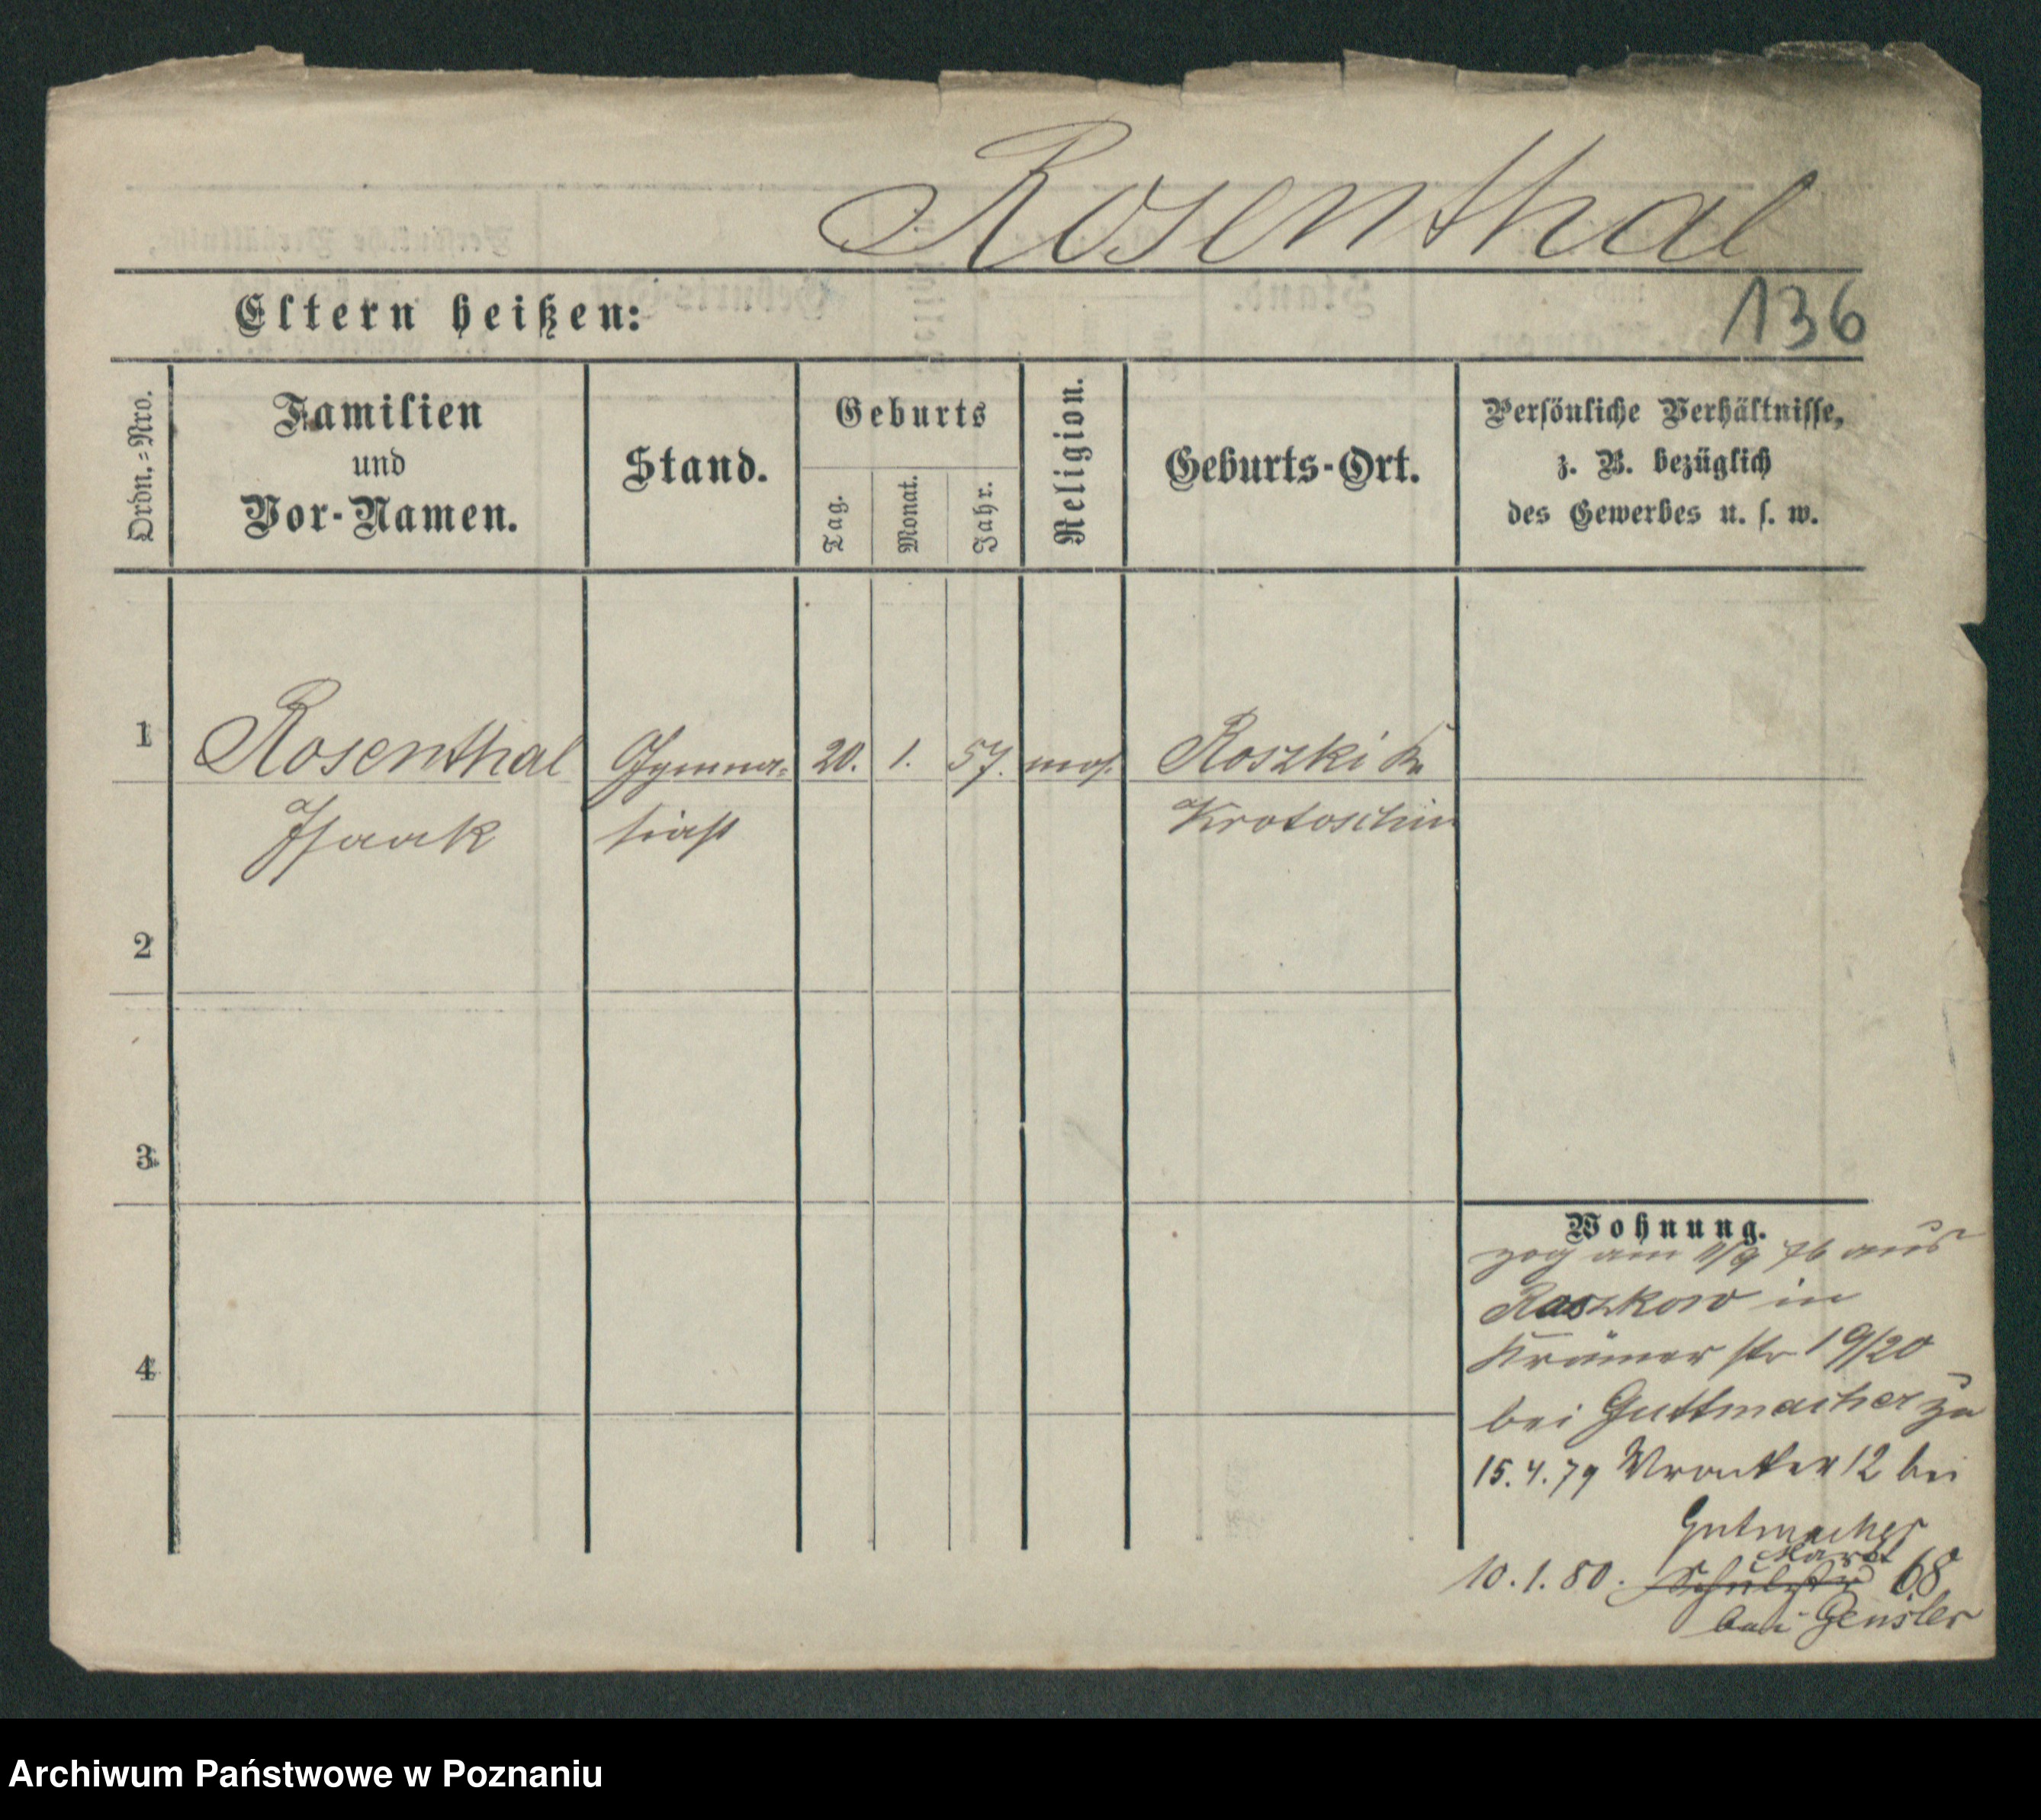 Rosenthal
Eltern heißen:
136
Ordn.=Nro.
Familien
und
Vor-Namen.
Stand.
Geburts
Tag.
Monat.
Jahr.
Religion.
Geburts-Ort.
Persönliche Verhältnisse,
z. B. bezüglich
des Gewerbes u. s. w.
1
Rosenthal Gymna= 20. 1. 57. mos. Roszki Kr
Isaak siast Krotoschin
2
3
4
Wohnung.
zog am 11/9 76 aus
Raszkow in
Krämer str 19/20
bei Guttmacher zu
15.4.79 Wronker 12 bei
Gutmacher
Markt
10.1.80. Schulstr 68
bei Gensler
Archiwum Państwowe w Poznaniu